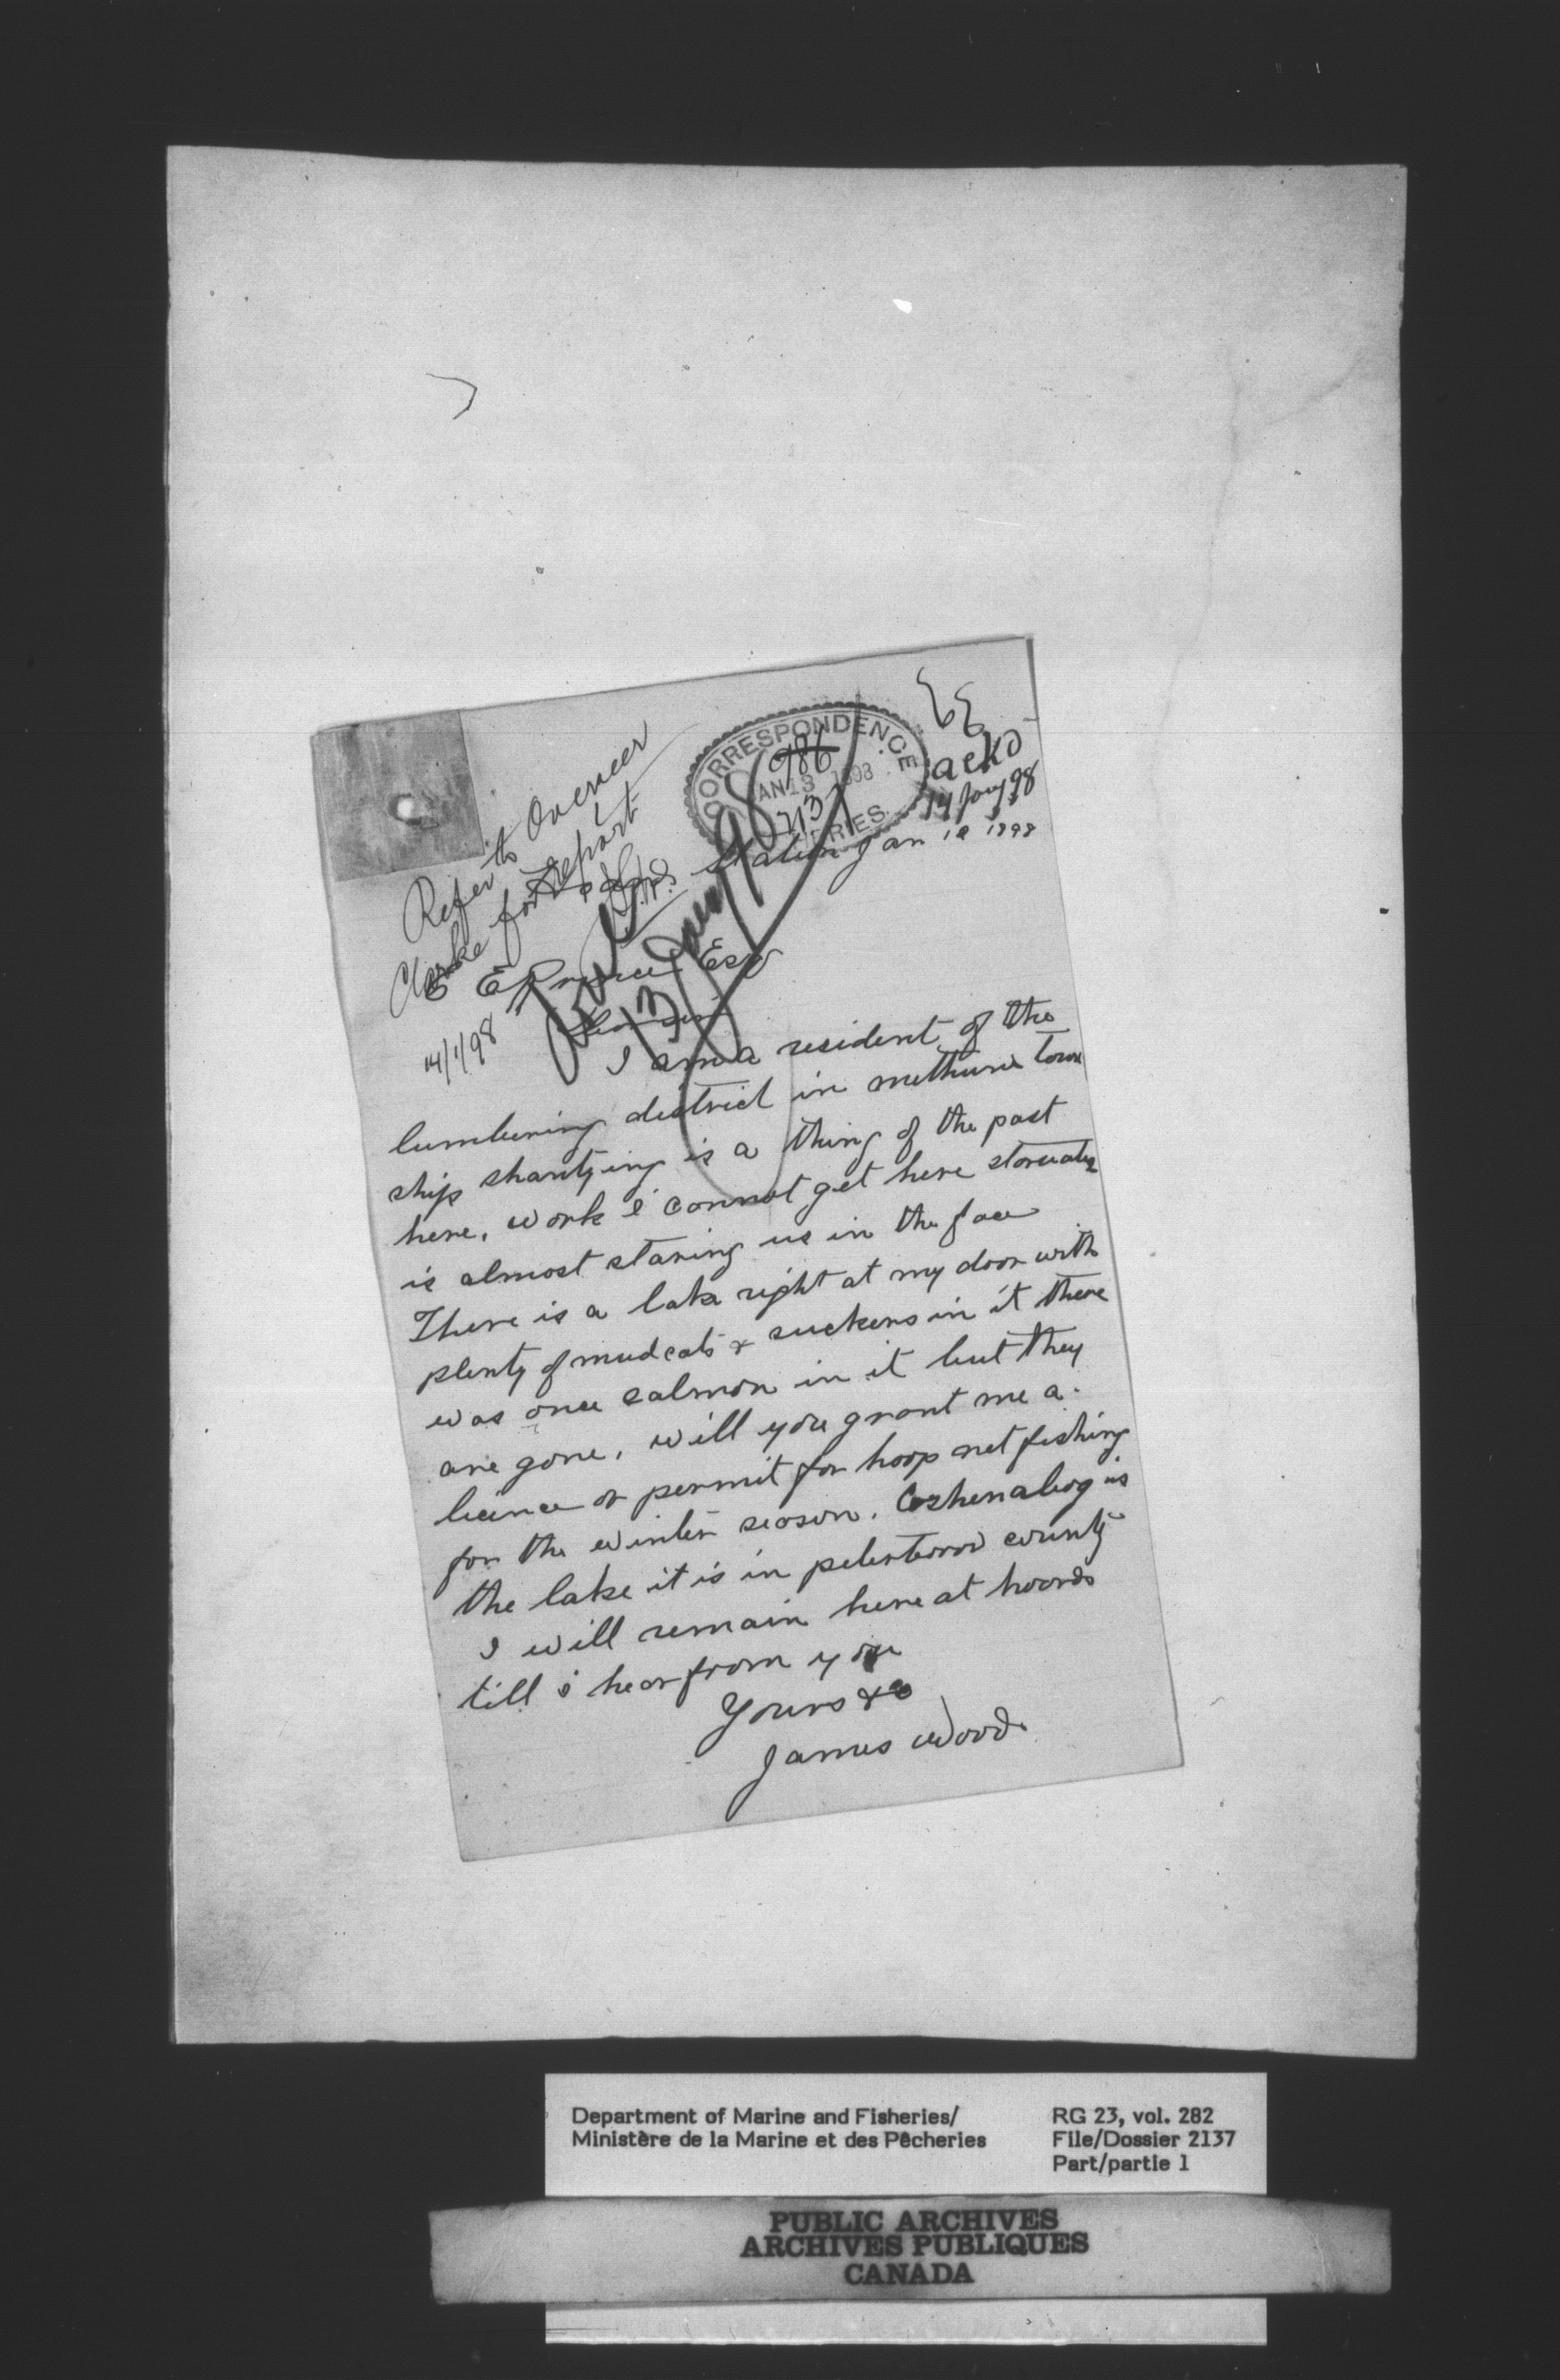 Refer to Overseer
Clarke for Report
14/1/98
CORRESPONDENCE
986
JAN 13 1898
2137
FISHERIES.
ackd
14 Jany 98
Station Jan 12 1898
E E Prince Esq
Dear sir
I am a resident of the
lumbering district in methuen town
ship shantying is a thing of the past
here, work i connot get here starvation
is almost staring us in the face
There is a lake right at my door with
plenty of mudcats & suckers in it there
was once salmon in it but they
are gone, will you grant me a
licence or permit for hoop net fishing
for the winter season. Coshenabog is
the lake it is in peterboroo county
I will remain here at hoords
till i hear from you
Yours &c
James Wood
Department of Marine and Fisheries/
Ministère de la Marine et des Pêcheries
RG 23, vol. 282
File/Dossier 2137
Part/partie 1
PUBLIC ARCHIVES
ARCHIVES PUBLIQUES
CANADA